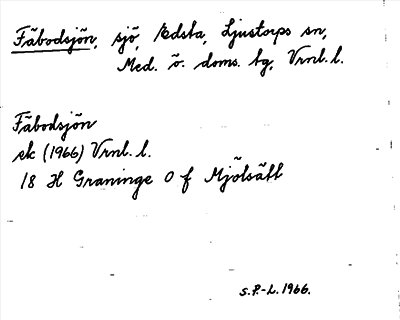 Fäbodsjön, sjö, Edsta, Ljustorps sn,
Med. ö. doms. bg, Vrnl. l.
Fäbodsjön
ek (1966) Vrnl. l.
18 H Graninge O f Mjölsätt
S.P.-L. 1966.